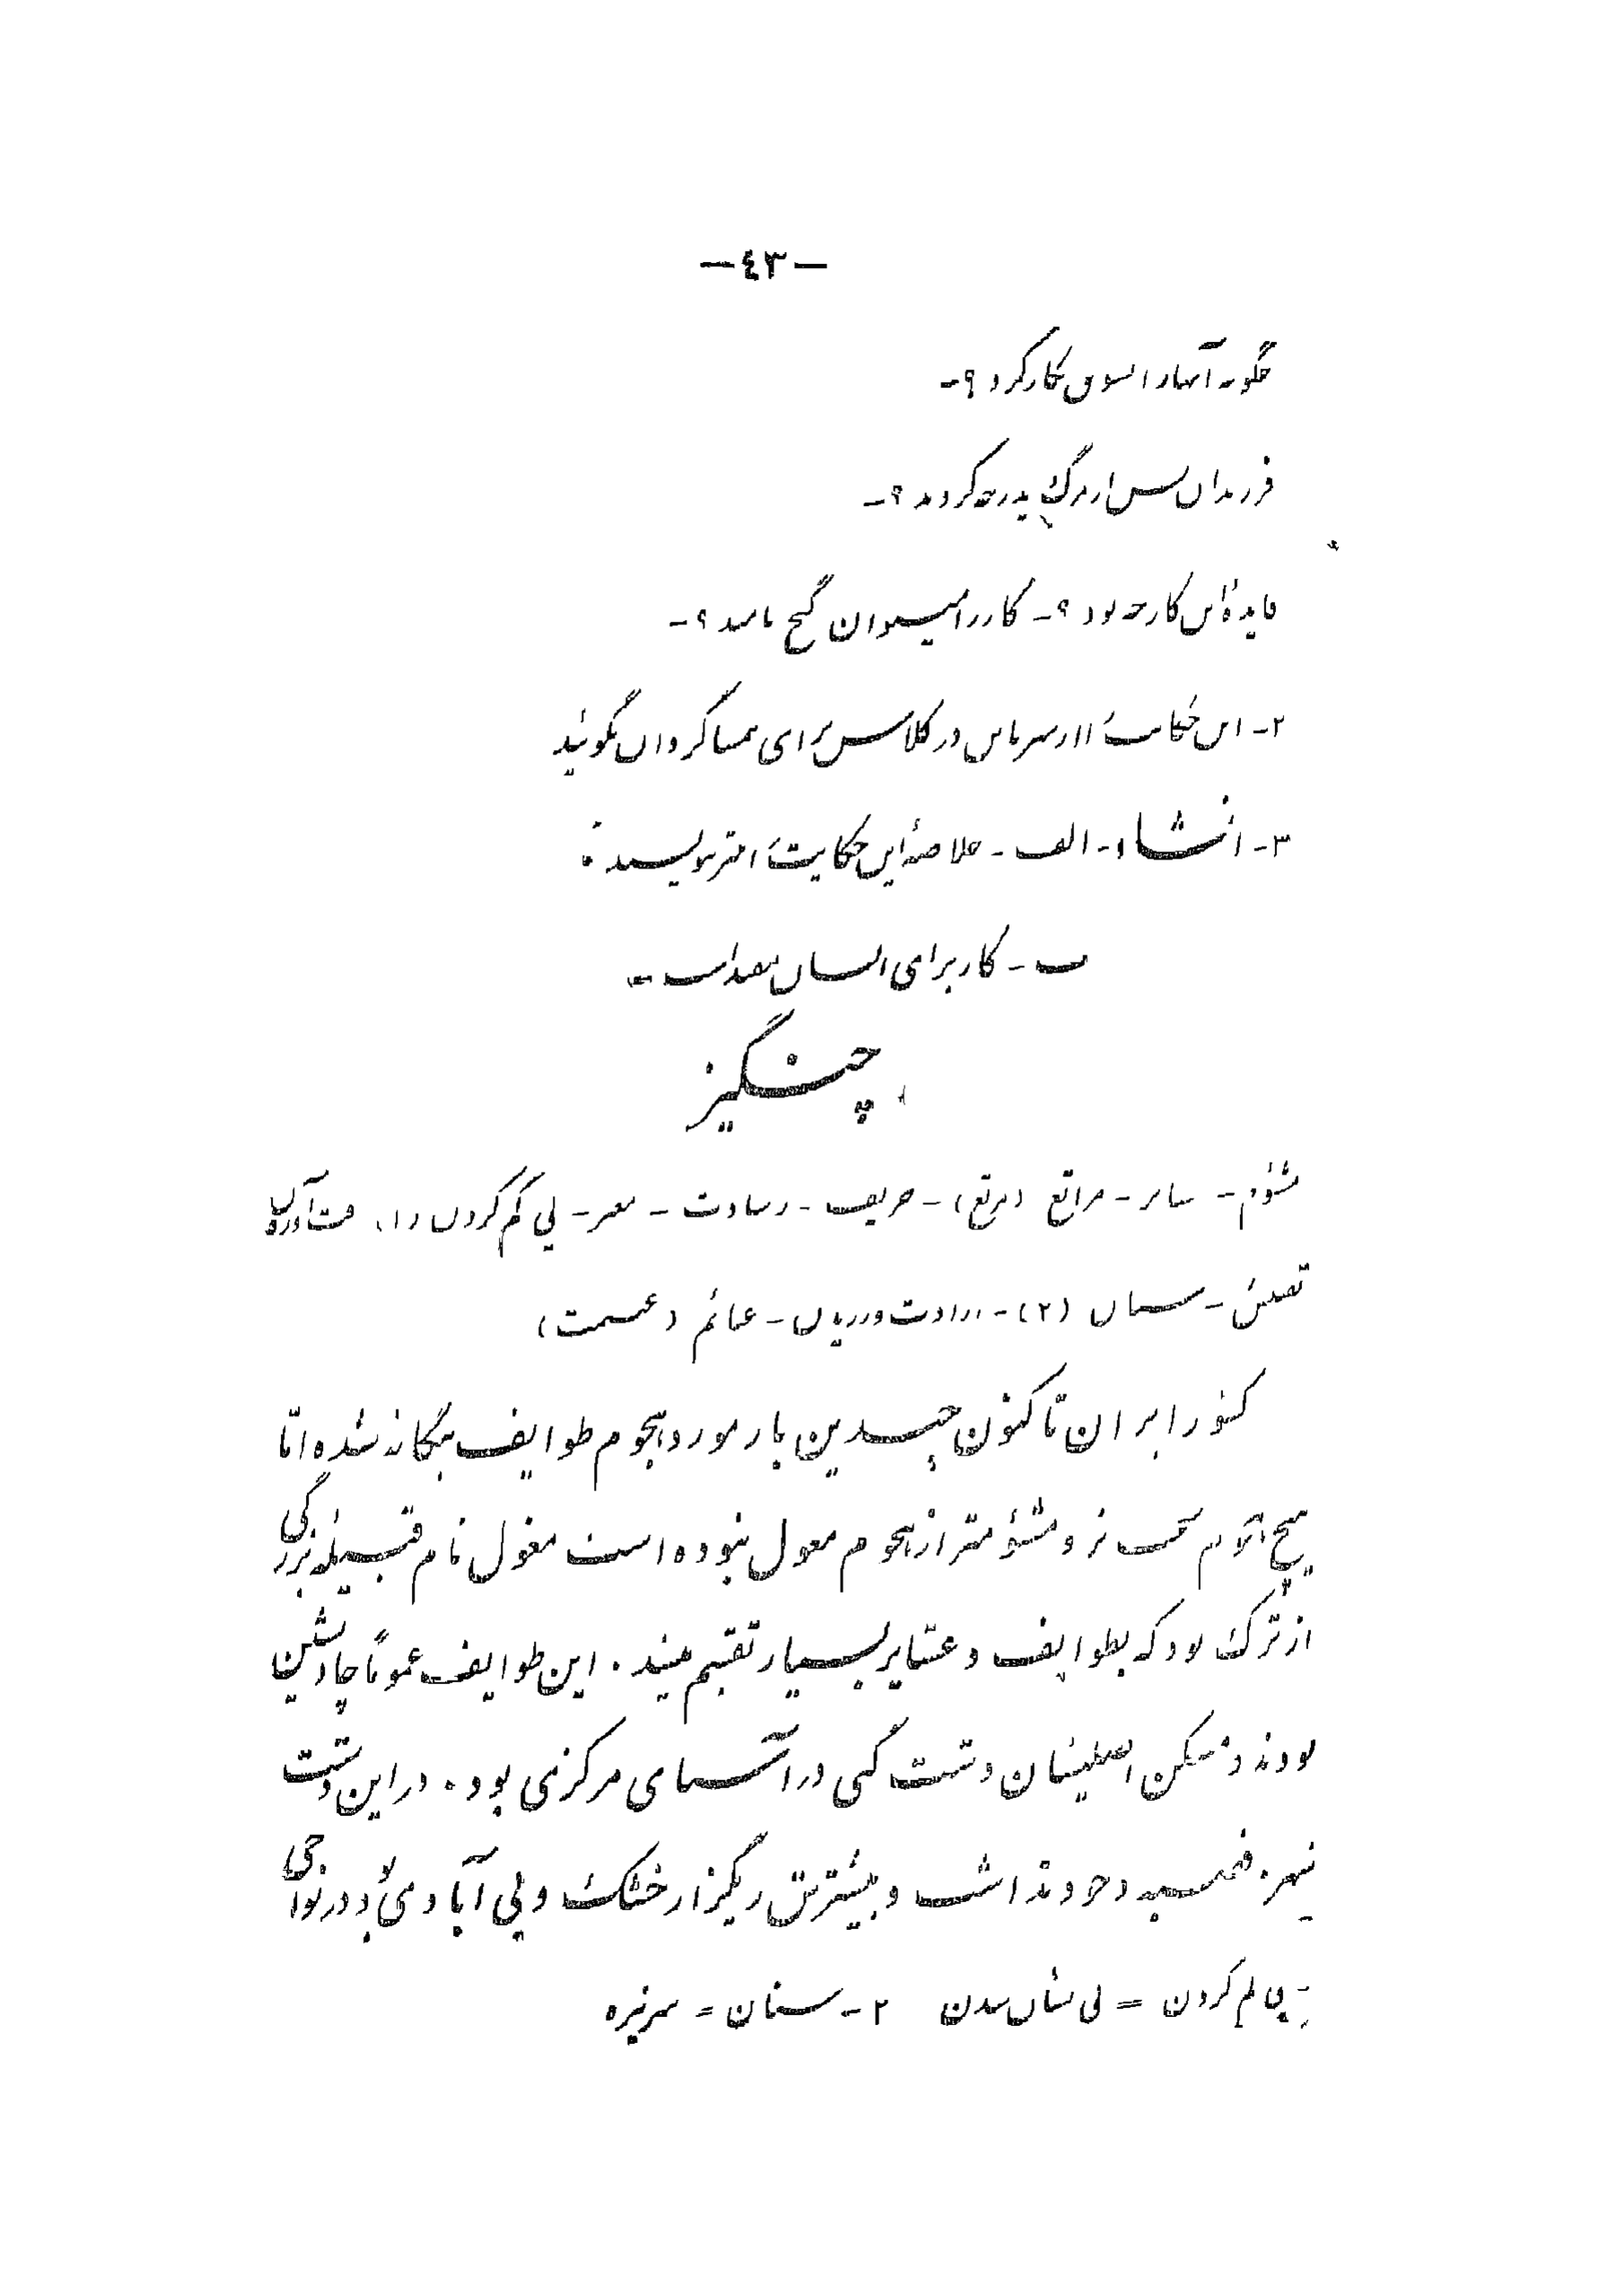 -٤٣-
چگونه آنها را تشویق بکار کرد ؟-
فرزندان پس از مرگ پدر چه کردند ؟-
فایدهٔ این کار چه بود ؟- کار را میتوان گنج نامید ؟-
۲- این حکایت را از بهر نمایش در کلاس برای همشاگردان بگوئید
۳- انشاء- الف- خلاصهٔ این حکایت را بنثر بنویسید :
ب- کار برای انسان مفید است -
چنگیز
مشؤم- سایر- مراتع (مرتع)- حریف- رسادت- معبر- پی گم کردن (۱)
سنان (۲)- ارادت ورزیدن- غنائم (غنیمت)
کشور ایران تا کنون چندین بار مورد هجوم طوایف بیگانه شده امّا
هیچکدام سخت تر و مشؤمتر از هجوم مغول نبوده است مغول نام قبیلهٔ بزرگی
از ترک بود که بطوایف و عشایر بسیار تقسیم میشد . این طوایف عموماً چادرنشین
بودند و مسکن اصلیشان دشت گبی در آسیای مرکزی بود . در این دشت
شهر و قصبه وجود نداشت و بیشترش ریگزار خشک و بی آبادی بود در نواحی
- پی گم کردن = بی نشان شدن ۲- سنان = سر نیزه